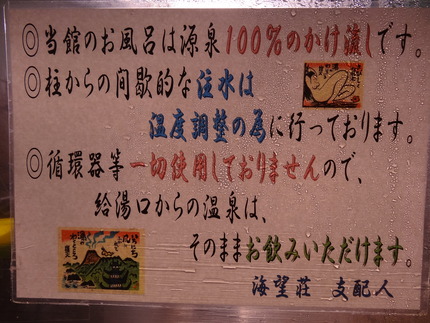 ◎当館のお風呂は源泉100%のかけ流しです。
◎柱からの間歇的な注水は
温度調整の為に行っております。
◎循環器等一切使用しておりませんので、
給湯口からの温泉は、
そのままお飲みいただけます。
海望荘 支配人